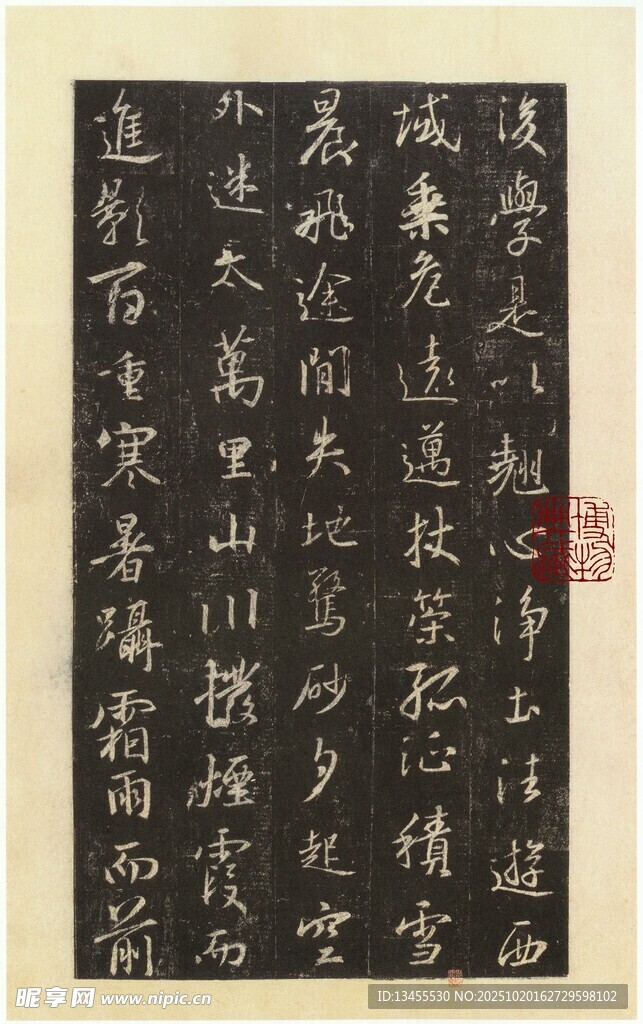 後學是以翹心淨土往遊西
域乘危遠邁杖策孤征積雪
晨飛途間失地驚砂夕起空
外迷天萬里山川撥煙霞而
進影百重寒暑躡霜雨而前
昵享网 www.nipic.cn
ID:13455530 NO:20251020162729598102